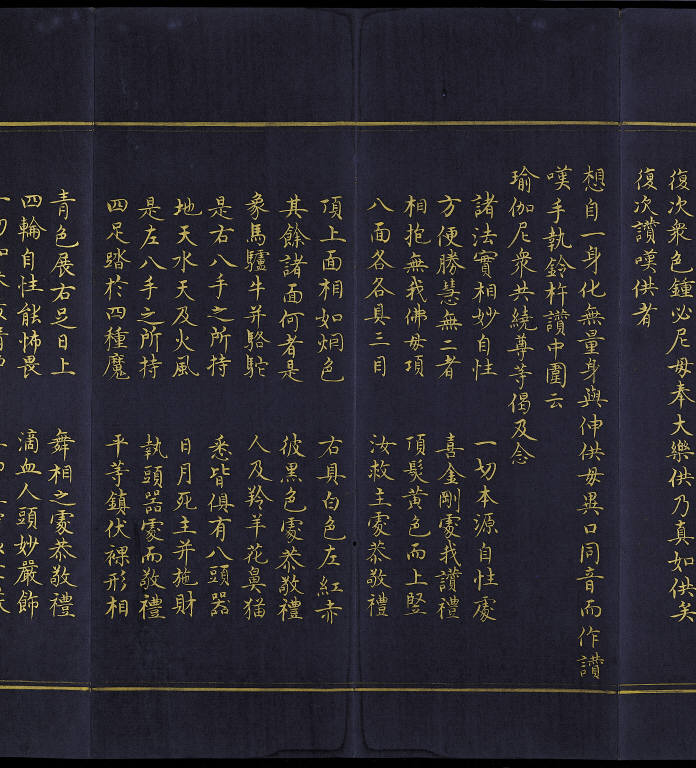 復次衆色鍾必尼毋奉大樂供乃真如供矣
復次讃嘆供者
想自一身化無量身與伸供毋異口同音而作讃
嘆手執鈴杵讃中圍云
瑜伽尼衆共繞尊等偈及念
諸法實相妙自性 一切本源自性處
方便勝慧無二者 喜金剛處我讃禮
相抱無我佛毋項 頂髮黄色而上竪
八面各各具三目 汝救主處恭敬禮
頂上面相如烟色 右具白色左紅赤
其餘諸面何者是 彼黑色處恭敬禮
象馬驢牛并駱駝 人及羚羊花鼻猫
是右八手之所持 悉皆俱有八頭器
地天水天及火風 日月死主并施財
是左八手之所持 執頭器處而敬禮
四足踏於四種魔 平等鎮伏裸形相
青色展右足日上 舞相之處恭敬禮
四輪自性能怖畏 滴血人頭妙嚴飾